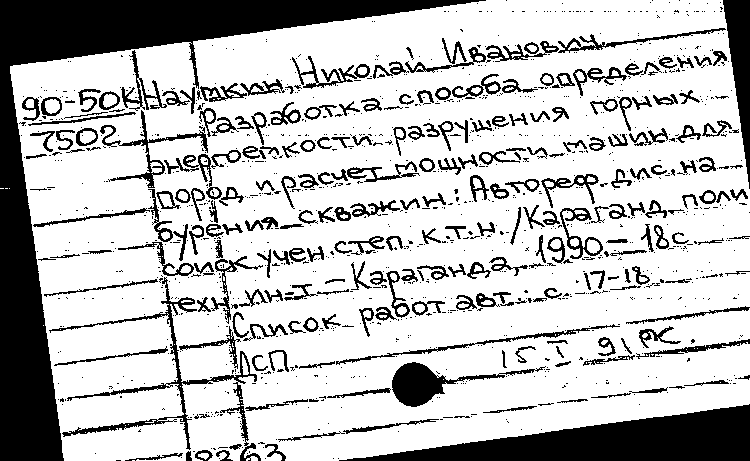 90-50К Наумкин, Николай Иванович
7502 Разработка способа определения
энергоемкости разрушения горных
пород и расчет мощности машин для
бурения скважин: Автореф. дис. на
соиск. учен. степ. к.т.н. / Караганд. поли
техн. ин-т – Караганда, 1990. – 18 с.
Список работ авт.: с. 17-18.
ДСП
15. I. 91